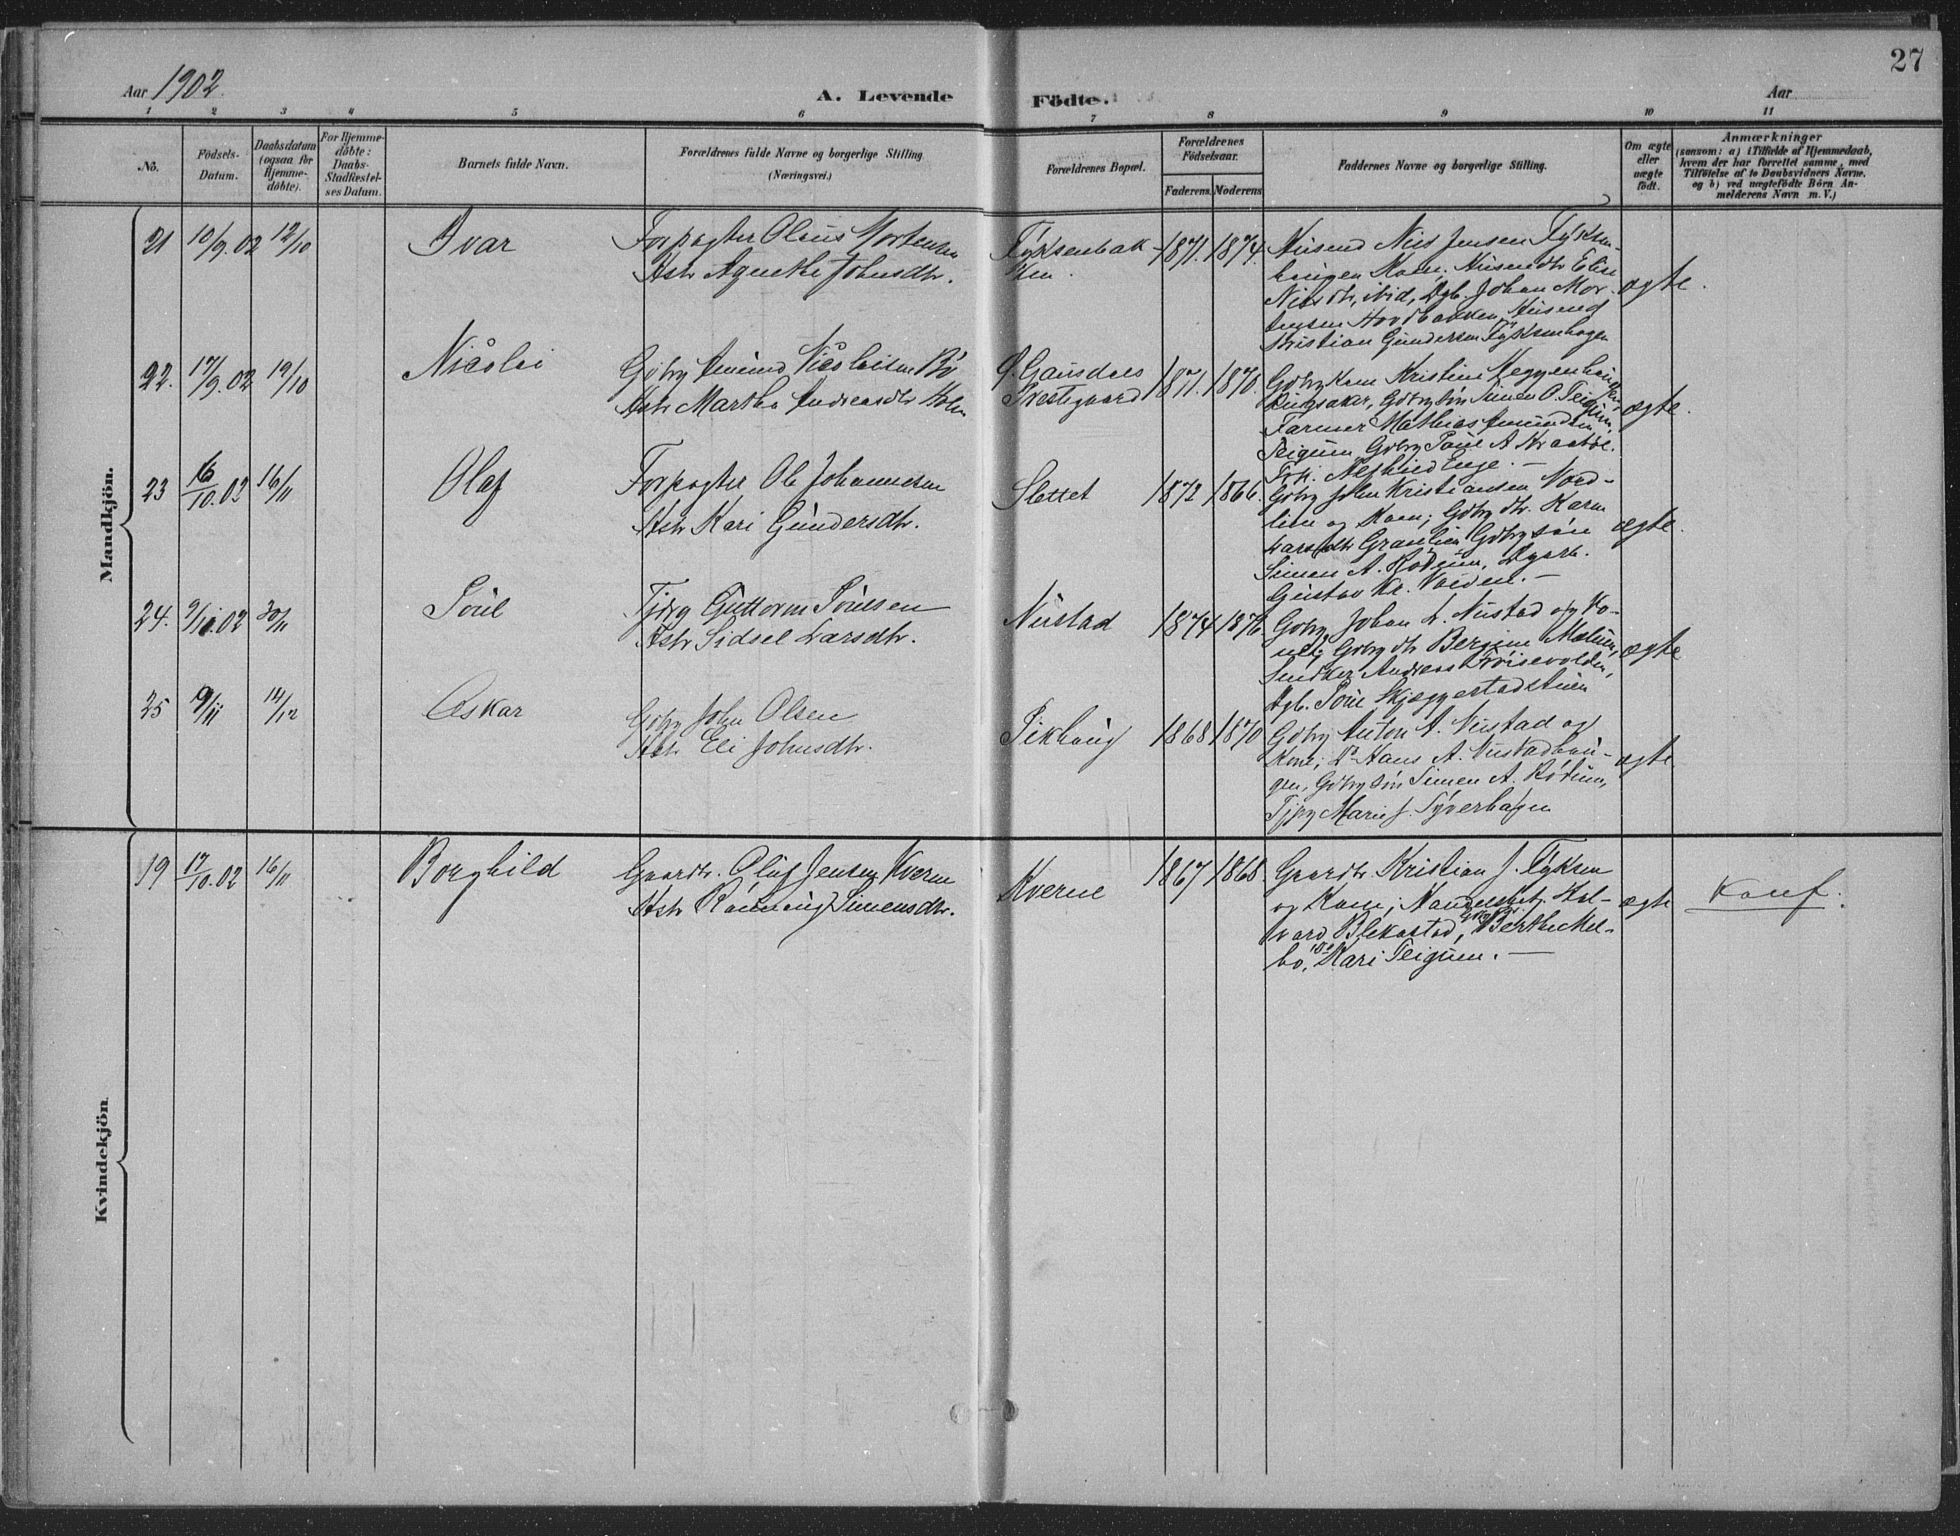 27
Aar 1902.
A. Levende Födte.
Aar
1 2 3 4 5 6 7 8 9 10 11
No.
Födsels-
Datum.
Daabsdatum
(ogsaa for
Hjemme-
döbte).
For Hjemme-
döbte:
Daabs-
Stadfæstel-
ses Datum.
Barnets fulde Navn.
Forældrenes fulde Navne og borgerlige Stilling
(Næringsvei.)
Forældrenes Bopæl.
Forældrenes
Födselsaar.
Faderens. Moderens.
Faddernes Navne og borgerlige Stilling.
Om ægte
eller
uægte
födt.
Anmærkninger
(saasom: a) i Tilfælde af Hjemmedaab,
hvem der har forrettet samme, med
Tilföielse af to Daabsvidners Navne.
og b) ved uægtefödte Börn An-
melderens Navn m. V.)
Mandkjön.
21 10/9.02 12/10 Ivar
Forpagter Olaus Mortensen
Hstr Agnethe Johnsdtr.
Fyksenbak-
ken.
1871. 1874.
Husmd Nils Jensen Fyksen-
haugen Kone; Husmdtr Elise
Nilsdtr, ibid, Dgb. Johan Mor-
tensen Hovdbakken, Husmd
Kristian Gundersen Fyksenhagen
ægte.
22. 17/9.02 19/10 Nicolai
Gbbr Amund Nicolaisen Bö
Hstr Martha Andreasdtr Holm
Ö. Gausdals
Prestegaard
1871. 1870.
Gdbr Kone Kristine Heggenhaugen
Ringsaker, Gdbr sön Simen O. Teigum,
Farmer Mathias Amundsen
Teigum, Gdbr Paul A.
Frk.
ægte.
23 16/10.02 16/11 Olaf
Forpagter Ole Johannesen
Hstr Kari Gundersdtr.
Slettet
1872 1866.
Gdbr John Kristiansen Nord-
lien og Kone; Gdbr dtr. Karen
Larsdtr Granlien, Gdbr sön
Simen A. Rödum, Dgarb.
Gustav Kr. Volden. —
ægte.
24. 9/11.02 30/11 Poul
Tjbr Guttorm Poulsen
Hstr Sidsel Larsdtr.
Nustad
1874 1876.
Gdbr Johan L. Nustad og Ko-
ne; Gdbr dtr Bergine Melum,
Snedker Andreas Fröisevolden,
Dgb. Poul Skjeggerstadstuen
ægte
25 9/11 14/12 Oskar
Gdbr John Olsen
Hstr Eli Johnsdtr.
Pikhaug
1868 1870
Gdbr Anton A. Nustad og
Kone; Do Hans A. Nustadhau-
gen, Gdbr sön Simen A. Rödum,
Tjpg Marie J. Syverhagen
ægte.
Kvindekjön.
19 17/10.02 16/11 Borghild
Gaardbr. Oluf Jensen Kverne
Hstr Rönnaug Simensdtr.
Kverne
1867 1868.
Gaardbr. Kristian J. Fyksen
og Kone; Handelsbetj. Hal-
vard Blekastad, Berthe Mel-
bo, Do Kari Teigum. —
ægte
Konf.